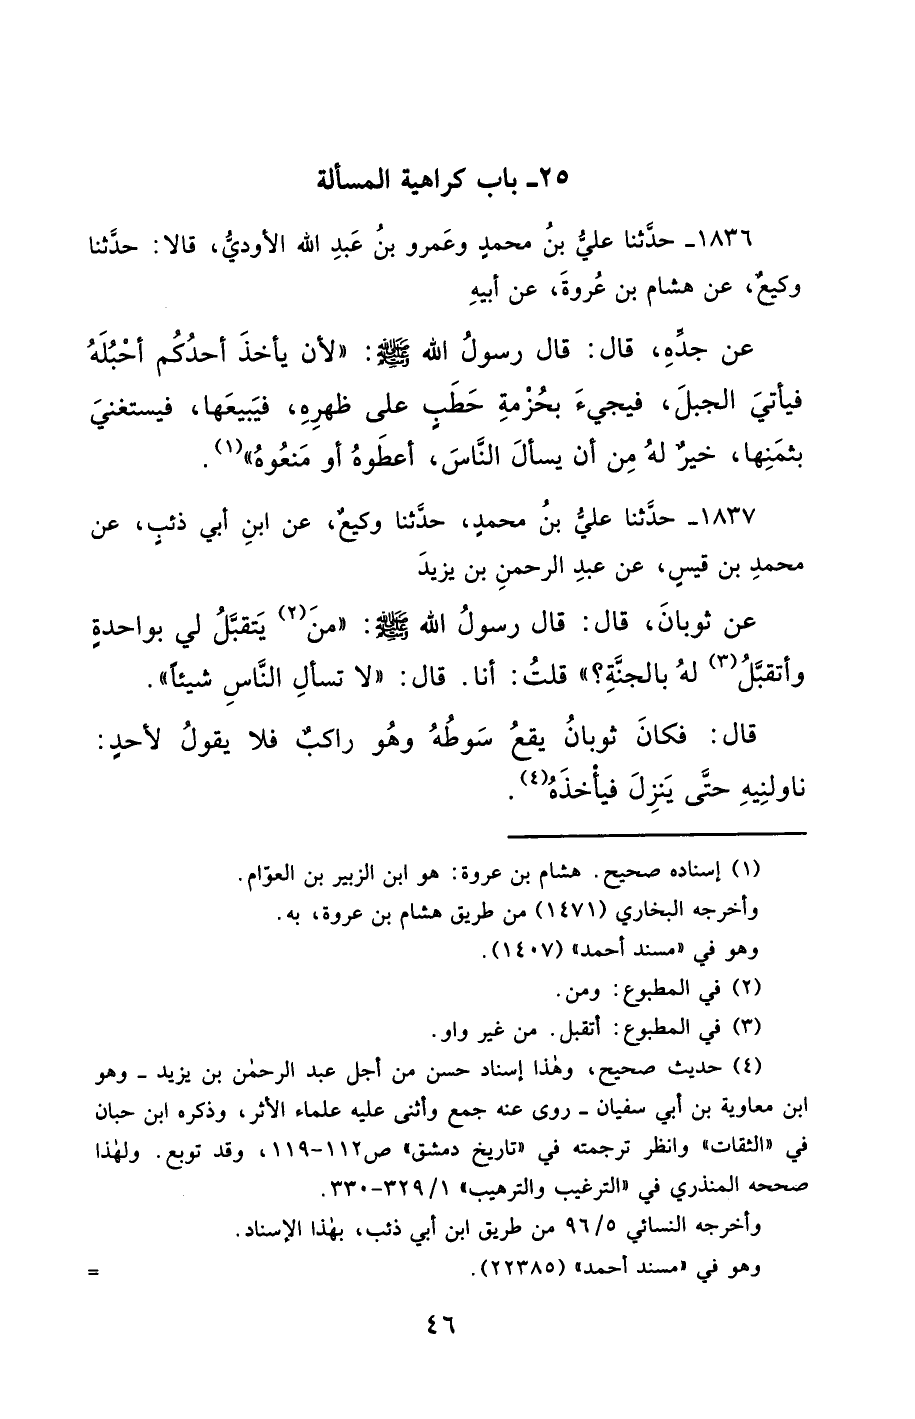 ٢٥ـ باب كراهية المسألة
١٨٣٦ـ حدَّثنا عليُّ بنُ محمدٍ وعَمرو بنُ عَبدِ الله الأوديُّ، قالا: حدَّثنا
وكيعٌ، عن هشام بن عُروةَ، عن أبيهِ
عن جدِّهِ، قال: قال رسولُ الله ﷺ: «لأن يأخذَ أحدُكُم أحْبُلَهُ
فيأتيَ الجبلَ، فيجيءَ بحُزْمةِ حَطَبٍ على ظهرِهِ، فيَبيعَها، فيستغنيَ
بثمَنِها، خيرٌ لهُ مِن أن يسألَ النَّاسَ، أعطَوهُ أو مَنعُوهُ»(١).
١٨٣٧ـ حدَّثنا عليُّ بنُ محمدٍ، حدَّثنا وكيعٌ، عن ابنِ أبي ذئبٍ، عن
محمدِ بن قيسٍ، عن عبدِ الرحمنِ بن يزيدَ
عن ثوبانَ، قال: قال رسولُ الله ﷺ: «منَ(٢) يَتقبَّلُ لي بواحدةٍ
وأتقبَّلُ(٣) لهُ بالجنَّةِ؟» قلتُ: أنا. قال: «لا تسألِ النَّاسِ شيئاً».
قال: فكانَ ثوبانُ يقعُ سَوطُهُ وهُو راكبٌ فلا يقولُ لأحدٍ:
ناولنِيهِ حتَّى يَنزِلَ فيأْخذَهُ(٤).
(١) إسناده صحيح. هشام بن عروة: هو ابن الزبير بن العوّام.
وأخرجه البخاري (١٤٧١) من طريق هشام بن عروة، به.
وهو في «مسند أحمد» (١٤٠٧).
(٢) في المطبوع: ومن.
(٣) في المطبوع: أتقبل. من غير واو.
(٤) حديث صحيح، وهٰذا إسناد حسن من أجل عبد الرحمٰن بن يزيد ـ وهو
ابن معاوية بن أبي سفيان ـ روى عنه جمع وأثنى عليه علماء الأثر، وذكره ابن حبان
في «الثقات» وانظر ترجمته في «تاريخ دمشق» ص١١٢-١١٩، وقد توبع. ولهٰذا
صححه المنذري في «الترغيب والترهيب» ١/ ٣٢٩-٣٣٠.
وأخرجه النسائي ٥/ ٩٦ من طريق ابن أبي ذئب، بهٰذا الإسناد.
وهو في «مسند أحمد» (٢٢٣٨٥). =
٤٦